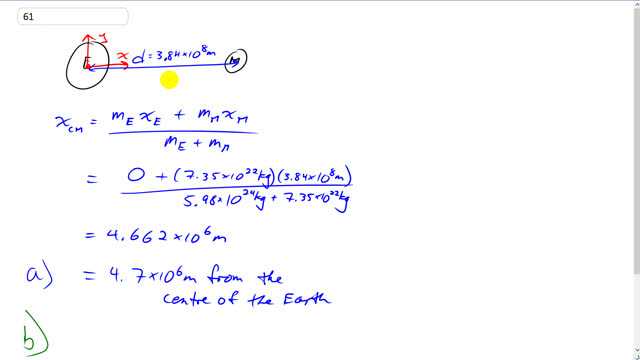 61
y
E x d = 3.84×10⁸m M
x_CM = m_E x_E + m_M x_M
m_E + m_M
= 0 + (7.35×10²² kg)(3.84×10⁸m)
5.98×10²⁴kg + 7.35×10²²kg
= 4.662×10⁶m
a) = 4.7×10⁶m from the
centre of the Earth
b)